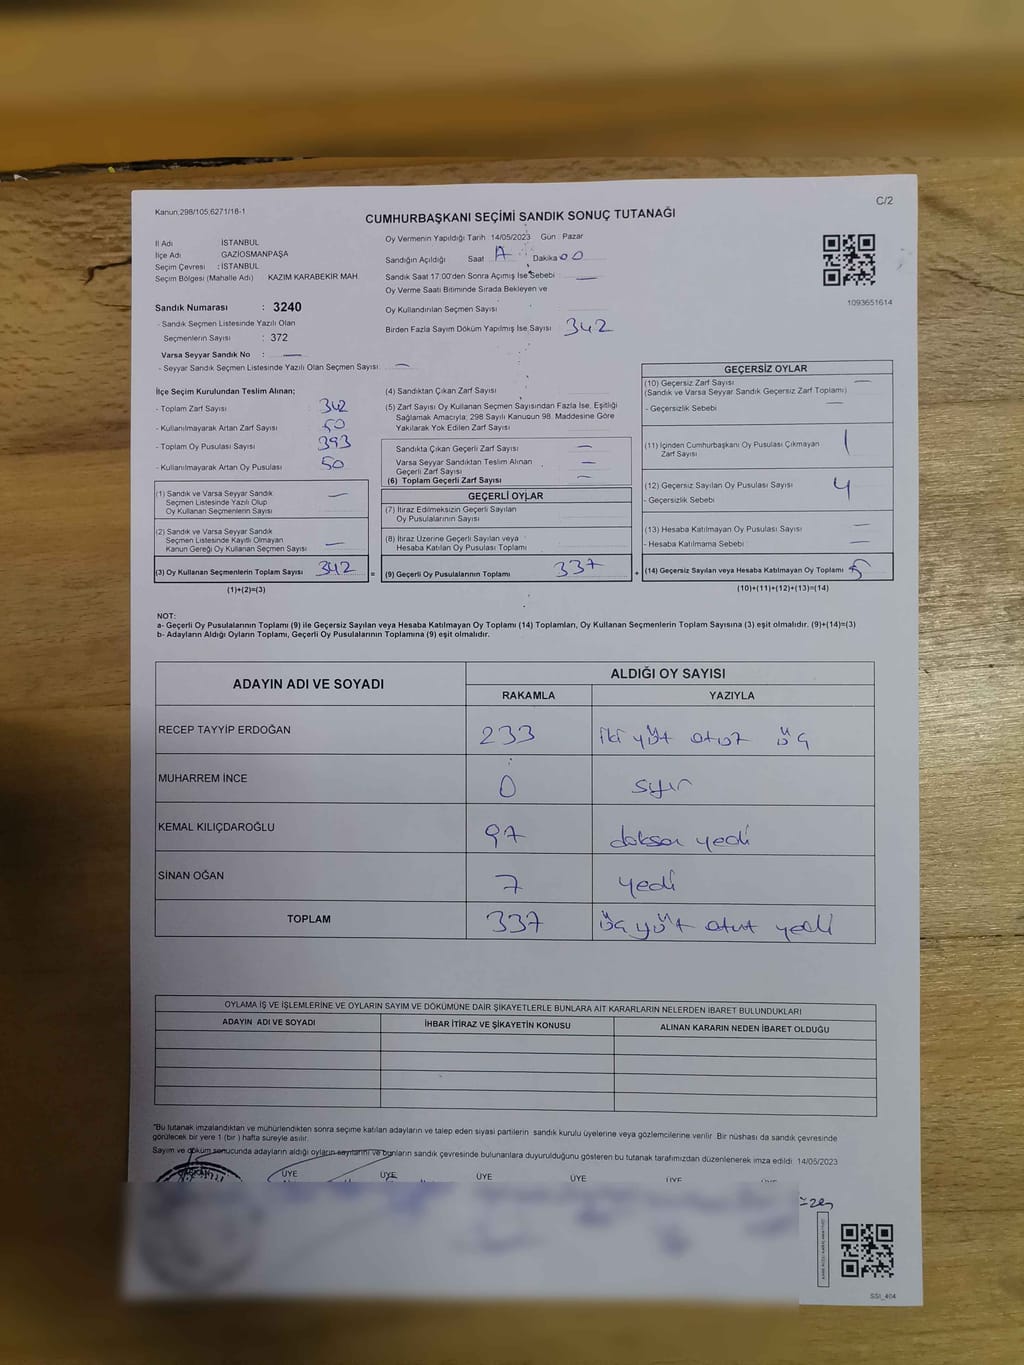 Kanun;298/105,6271/16-1
C/2
CUMHURBAŞKANI SEÇİMİ SANDIK SONUÇ TUTANAĞI
İl Adı İSTANBUL
İlçe Adı GAZİOSMANPAŞA
Seçim Çevresi : İSTANBUL
Seçim Bölgesi (Mahalle Adı) KAZIM KARABEKİR MAH.
Oy Vermenin Yapıldığı Tarih 14/05/2023 Gün : Pazar
Sandığın Açıldığı Saat Dakika 00
Sandık Saat 17:00'den Sonra Açımış İse Sebebi : —
Oy Verme Saati Bitiminde Sırada Bekleyen ve
Oy Kullandırılan Seçmen Sayısı
Birden Fazla Sayım Döküm Yapılmış İse Sayısı 342
1093651614
Sandık Numarası : 3240
- Sandık Seçmen Listesinde Yazılı Olan
Seçmenlerin Sayısı : 372
Varsa Seyyar Sandık No : —
- Seyyar Sandık Seçmen Listesinde Yazılı Olan Seçmen Sayısı: —
İlçe Seçim Kurulundan Teslim Alınan;
- Toplam Zarf Sayısı 342
- Kullanılmayarak Artan Zarf Sayısı 50
- Toplam Oy Pusulası Sayısı 393
- Kullanılmayarak Artan Oy Pusulası 50
(1) Sandık ve Varsa Seyyar Sandık
Seçmen Listesinde Yazılı Olup
Oy Kullanan Seçmenlerin Sayısı —
(2) Sandık ve Varsa Seyyar Sandık
Seçmen Listesinde Kayıtlı Olmayan
Kanun Gereği Oy Kullanan Seçmen Sayısı —
(3) Oy Kullanan Seçmenlerin Toplam Sayısı 342
(1)+(2)=(3)
=
(4) Sandıktan Çıkan Zarf Sayısı
(5) Zarf Sayısı Oy Kullanan Seçmen Sayısından Fazla İse, Eşitliği
Sağlamak Amacıyla; 298 Sayılı Kanunun 98. Maddesine Göre
Yakılarak Yok Edilen Zarf Sayısı
Sandıkta Çıkan Geçerli Zarf Sayısı —
Varsa Seyyar Sandıktan Teslim Alınan
Geçerli Zarf Sayısı —
(6) Toplam Geçerli Zarf Sayısı —
GEÇERLİ OYLAR
(7) İtiraz Edilmeksizin Geçerli Sayılan
Oy Pusulalarının Sayısı
(8) İtiraz Üzerine Geçerli Sayılan veya
Hesaba Katılan Oy Pusulası Toplamı
(9) Geçerli Oy Pusulalarının Toplamı 337
+
GEÇERSİZ OYLAR
(10) Geçersiz Zarf Sayısı —
(Sandık ve Varsa Seyyar Sandık Geçersiz Zarf Toplamı)
- Geçersizlik Sebebi —
(11) İçinden Cumhurbaşkanı Oy Pusulası Çıkmayan
Zarf Sayısı 1
(12) Geçersiz Sayılan Oy Pusulası Sayısı 4
- Geçersizlik Sebebi
(13) Hesaba Katılmayan Oy Pusulası Sayısı —
- Hesaba Katılmama Sebebi —
(14) Geçersiz Sayılan veya Hesaba Katılmayan Oy Toplamı 5
(10)+(11)+(12)+(13)=(14)
NOT:
a- Geçerli Oy Pusulalarının Toplamı (9) ile Geçersiz Sayılan veya Hesaba Katılmayan Oy Toplamı (14) Toplamları, Oy Kullanan Seçmenlerin Toplam Sayısına (3) eşit olmalıdır. (9)+(14)=(3)
b- Adayların Aldığı Oyların Toplamı, Geçerli Oy Pusulalarının Toplamına (9) eşit olmalıdır.
ADAYIN ADI VE SOYADI ALDIĞI OY SAYISI
RAKAMLA YAZIYLA
RECEP TAYYİP ERDOĞAN 233 iki yüz otuz üç
MUHARREM İNCE 0 sıfır
KEMAL KILIÇDAROĞLU 97 doksan yedi
SİNAN OĞAN 7 yedi
TOPLAM 337 üç yüz otuz yedi
OYLAMA İŞ VE İŞLEMLERİNE VE OYLARIN SAYIM VE DÖKÜMÜNE DAİR ŞİKAYETLERLE BUNLARA AİT KARARLARIN NELERDEN İBARET BULUNDUKLARI
ADAYIN ADI VE SOYADI İHBAR İTİRAZ VE ŞİKAYETİN KONUSU ALINAN KARARIN NEDEN İBARET OLDUĞU
"Bu tutanak imzalandıktan ve mühürlendikten sonra seçime katılan adayların ve talep eden siyasi partilerin sandık kurulu üyelerine veya gözlemcilerine verilir. Bir nüshası da sandık çevresinde
görülecek bir yere 1 (bir ) hafta süreyle asılır.
Sayım ve döküm sonucunda adayların aldığı oyların sayılarını ve bunların sandık çevresinde bulunanlara duyurulduğunu gösteren bu tutanak tarafımızdan düzenlenerek imza edildi. 14/05/2023
BAŞKAN ÜYE ÜYE ÜYE ÜYE ÜYE
SSİ_404